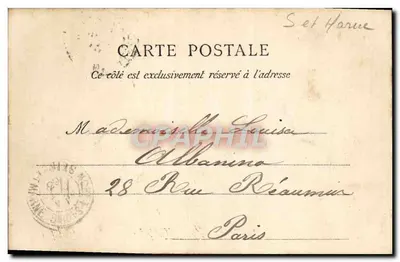 S et Marne
CARTE POSTALE
Ce côté est exclusivement réservé à l'adresse
Mademoiselle Louisa
Albanino
28 Rue Réaumur
Paris
CPAPHIL